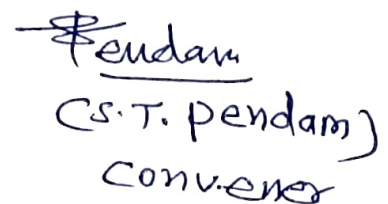 Pendam
(S.T. Pendam)
Convener